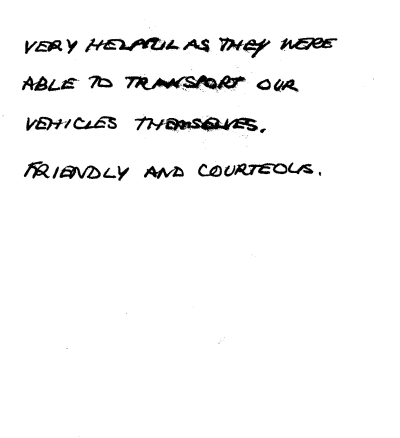 VERY HELPFUL AS THEY WERE
ABLE TO TRANSPORT OUR
VEHICLES THEMSELVES.
FRIENDLY AND COURTEOUS.